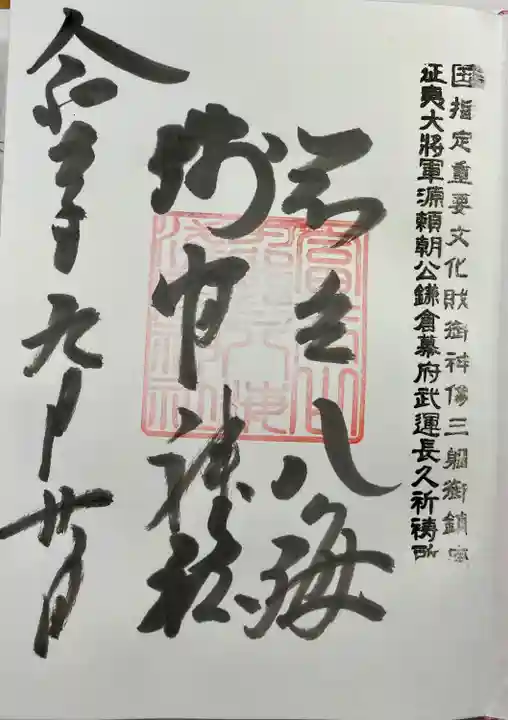 国指定重要文化財御神像三躯御鎮座
征夷大將軍源頼朝公鎌倉幕府武運長久祈祷所
忍野八海
浅間神社
令和元年九月廿日